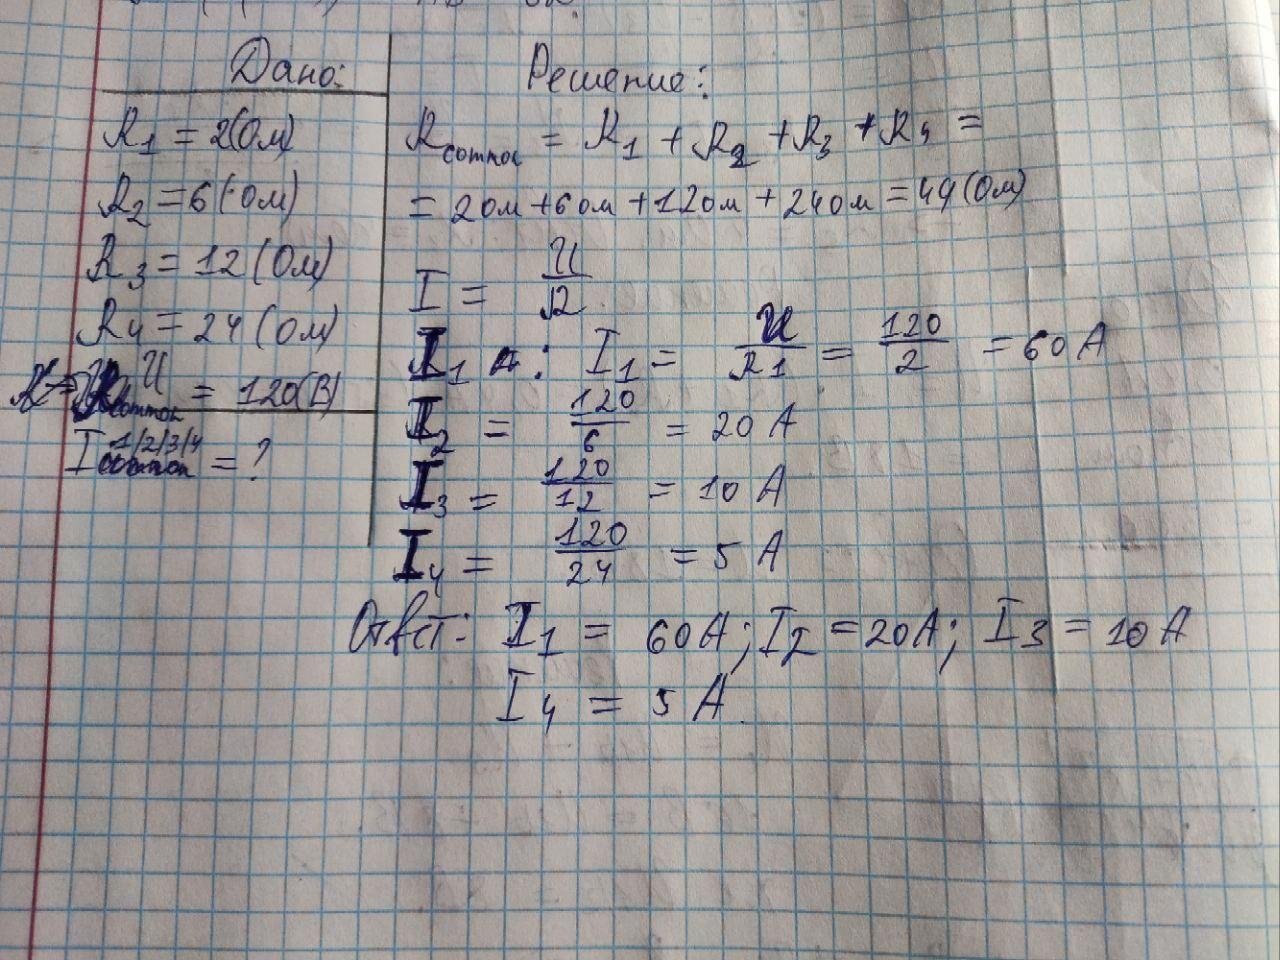 Дано:
R1 = 2(Ом)
R2 = 6(Ом)
R3 = 12(Ом)
R4 = 24(Ом)
U = 120(В)
I 1/2/3/4 = ?
Решение:
R = R1 + R2 + R3 + R4 =
= 2Ом + 6Ом + 12Ом + 24Ом = 44(Ом)
I = U/R
I1 : I1 = U/R1 = 120/2 = 60 А
I2 = 120/6 = 20 А
I3 = 120/12 = 10 А
I4 = 120/24 = 5 А
Ответ: I1 = 60А; I2 = 20А; I3 = 10 А
I4 = 5 А.